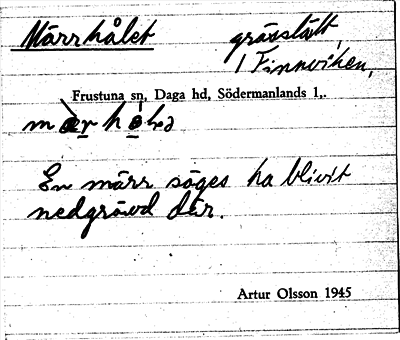 Märrhålet grässlätt,
i Finnviken,
Frustuna sn, Daga hd, Södermanlands l,.
En märr säges ha blivit
nedgrävd där.
Artur Olsson 1945